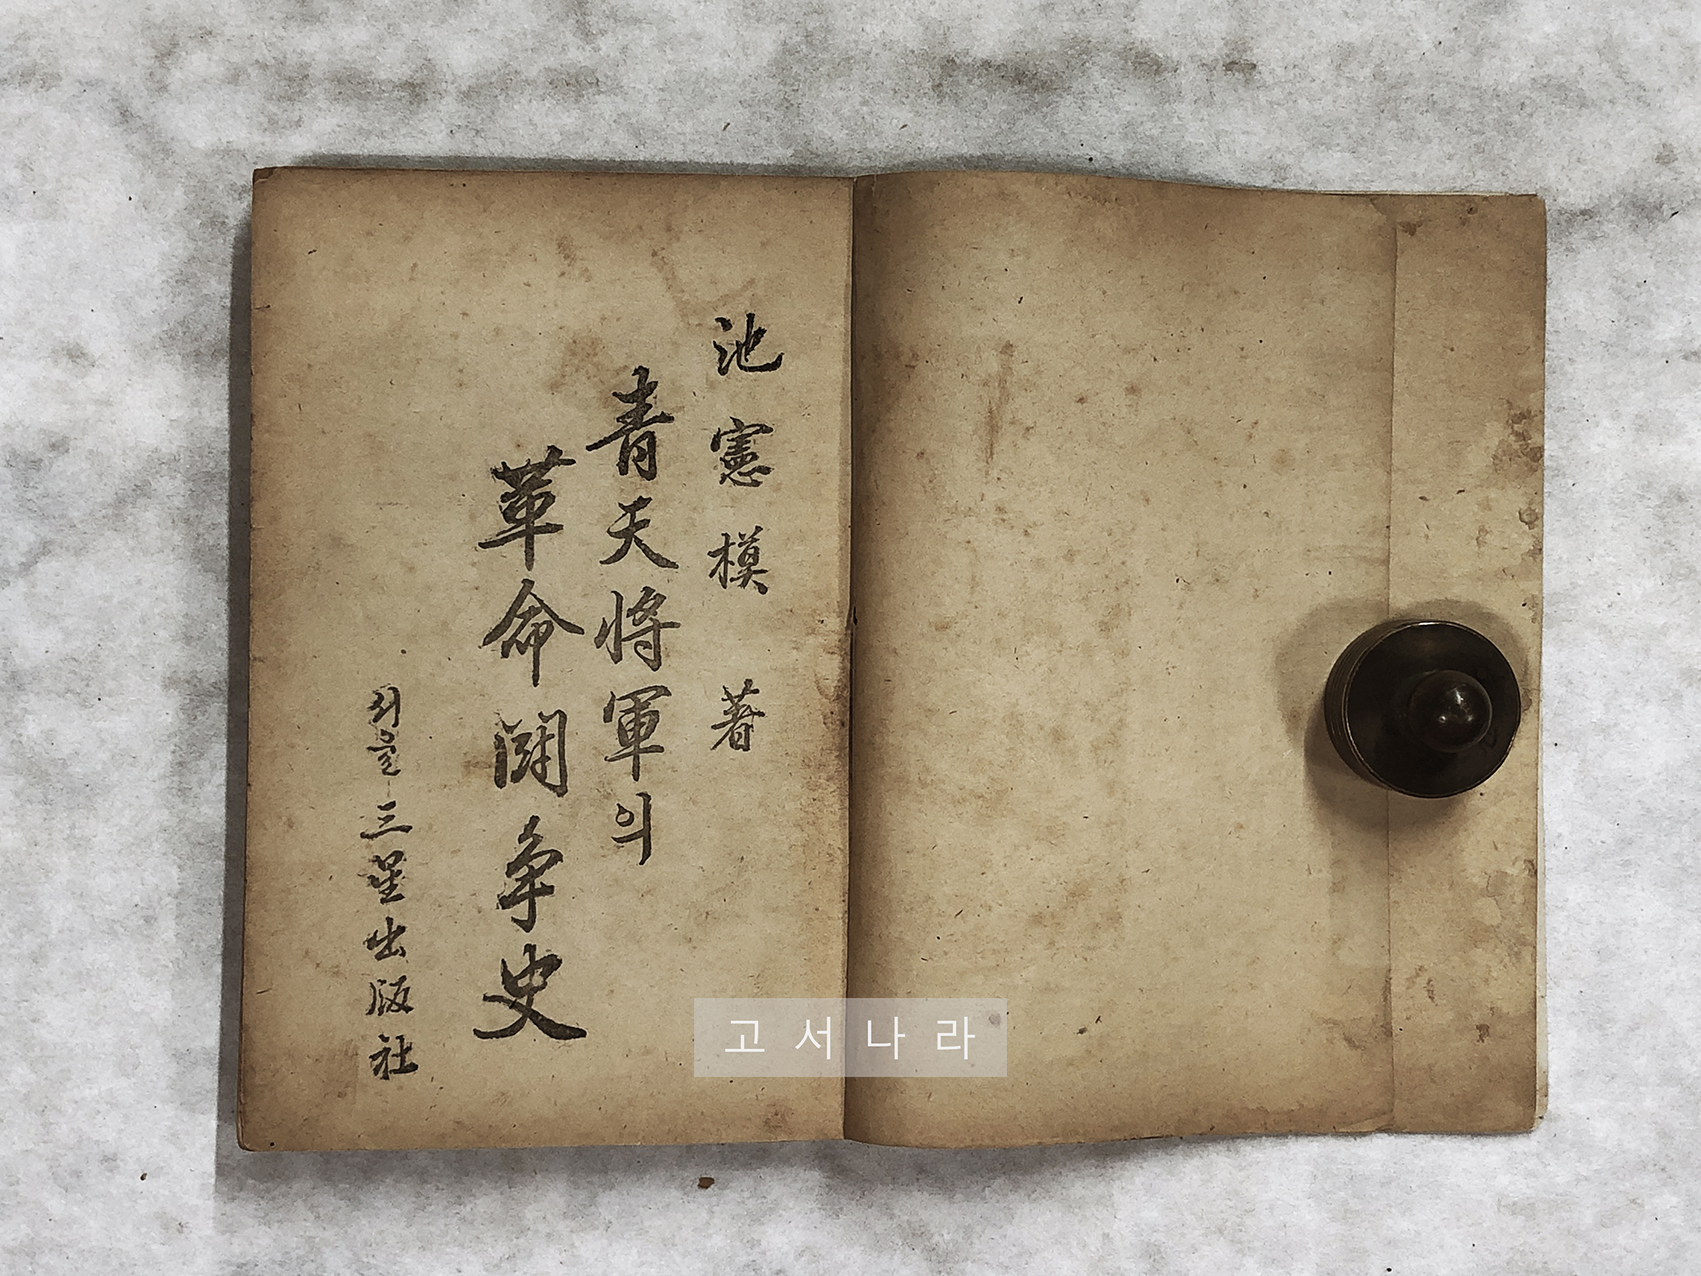 池憲模 著
青天將軍의
革命鬪爭史
서울 三星出版社
고서나라